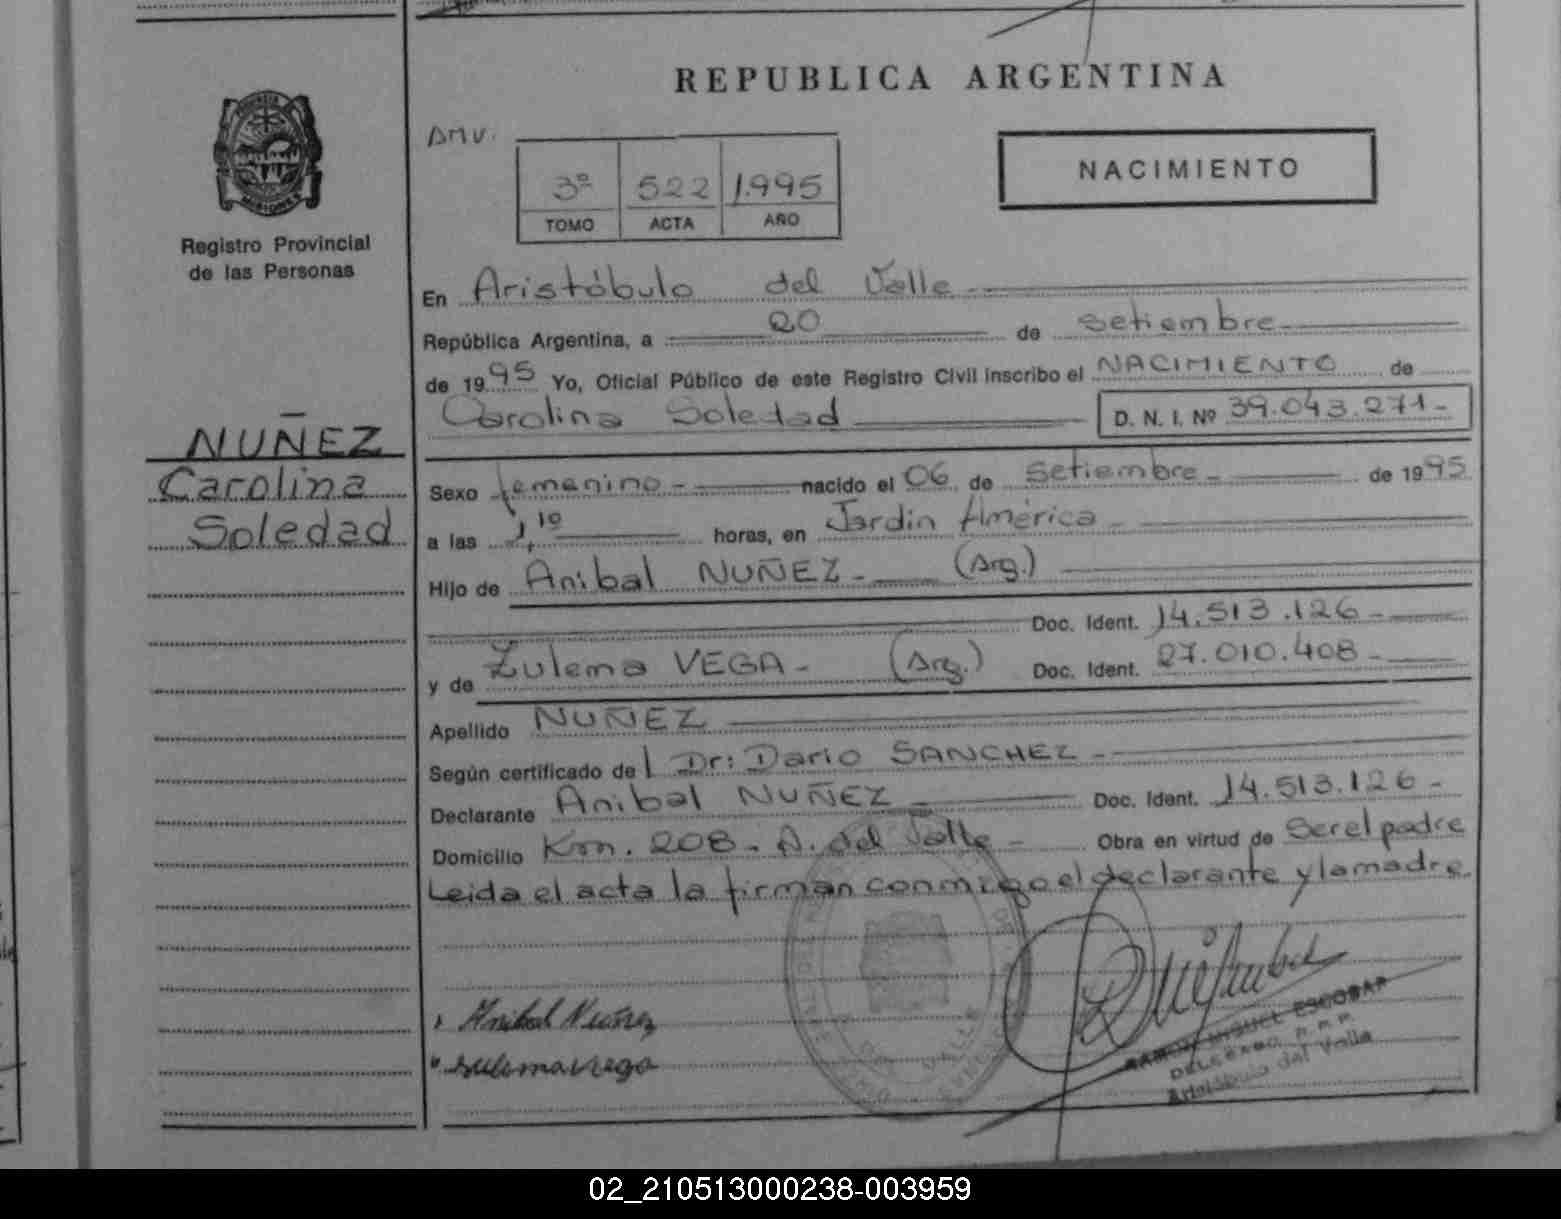 REPUBLICA ARGENTINA
PROVINCIA
MISIONES
Registro Provincial
de las Personas
AMV.
3º 522 1.995
TOMO ACTA AÑO
NACIMIENTO
En Aristóbulo del Valle
República Argentina, a 20 de Setiembre
de 1995 Yo, Oficial Público de este Registro Civil inscribo el NACIMIENTO de
Carolina Soledad D. N. I. Nº 39.043.271-
NUÑEZ
Carolina
Soledad
Sexo femenino - nacido el 06 de Setiembre - de 1995
a las 1,10 horas, en Jardin América -
Hijo de Anibal NUÑEZ - (Arg.)
Doc. Ident. 14.513.126 -
y de Zulema VEGA - (Arg.) Doc. Ident. 27.010.408 -
Apellido NUÑEZ
Según certificado del Dr: Dario SANCHEZ -
Declarante Anibal NUÑEZ - Doc. Ident. 14.513.126 -
Domicilio Km. 208 - A. del Valle - Obra en virtud de Ser el padre
Leida el acta la firman conmigo el declarante y la madre.
Anibal Nuñez
Zulema Vega
RAMON MIGUEL ESCOBAR
DELEGADO R.P.P.
Aristóbulo del Valle
02_210513000238-003959